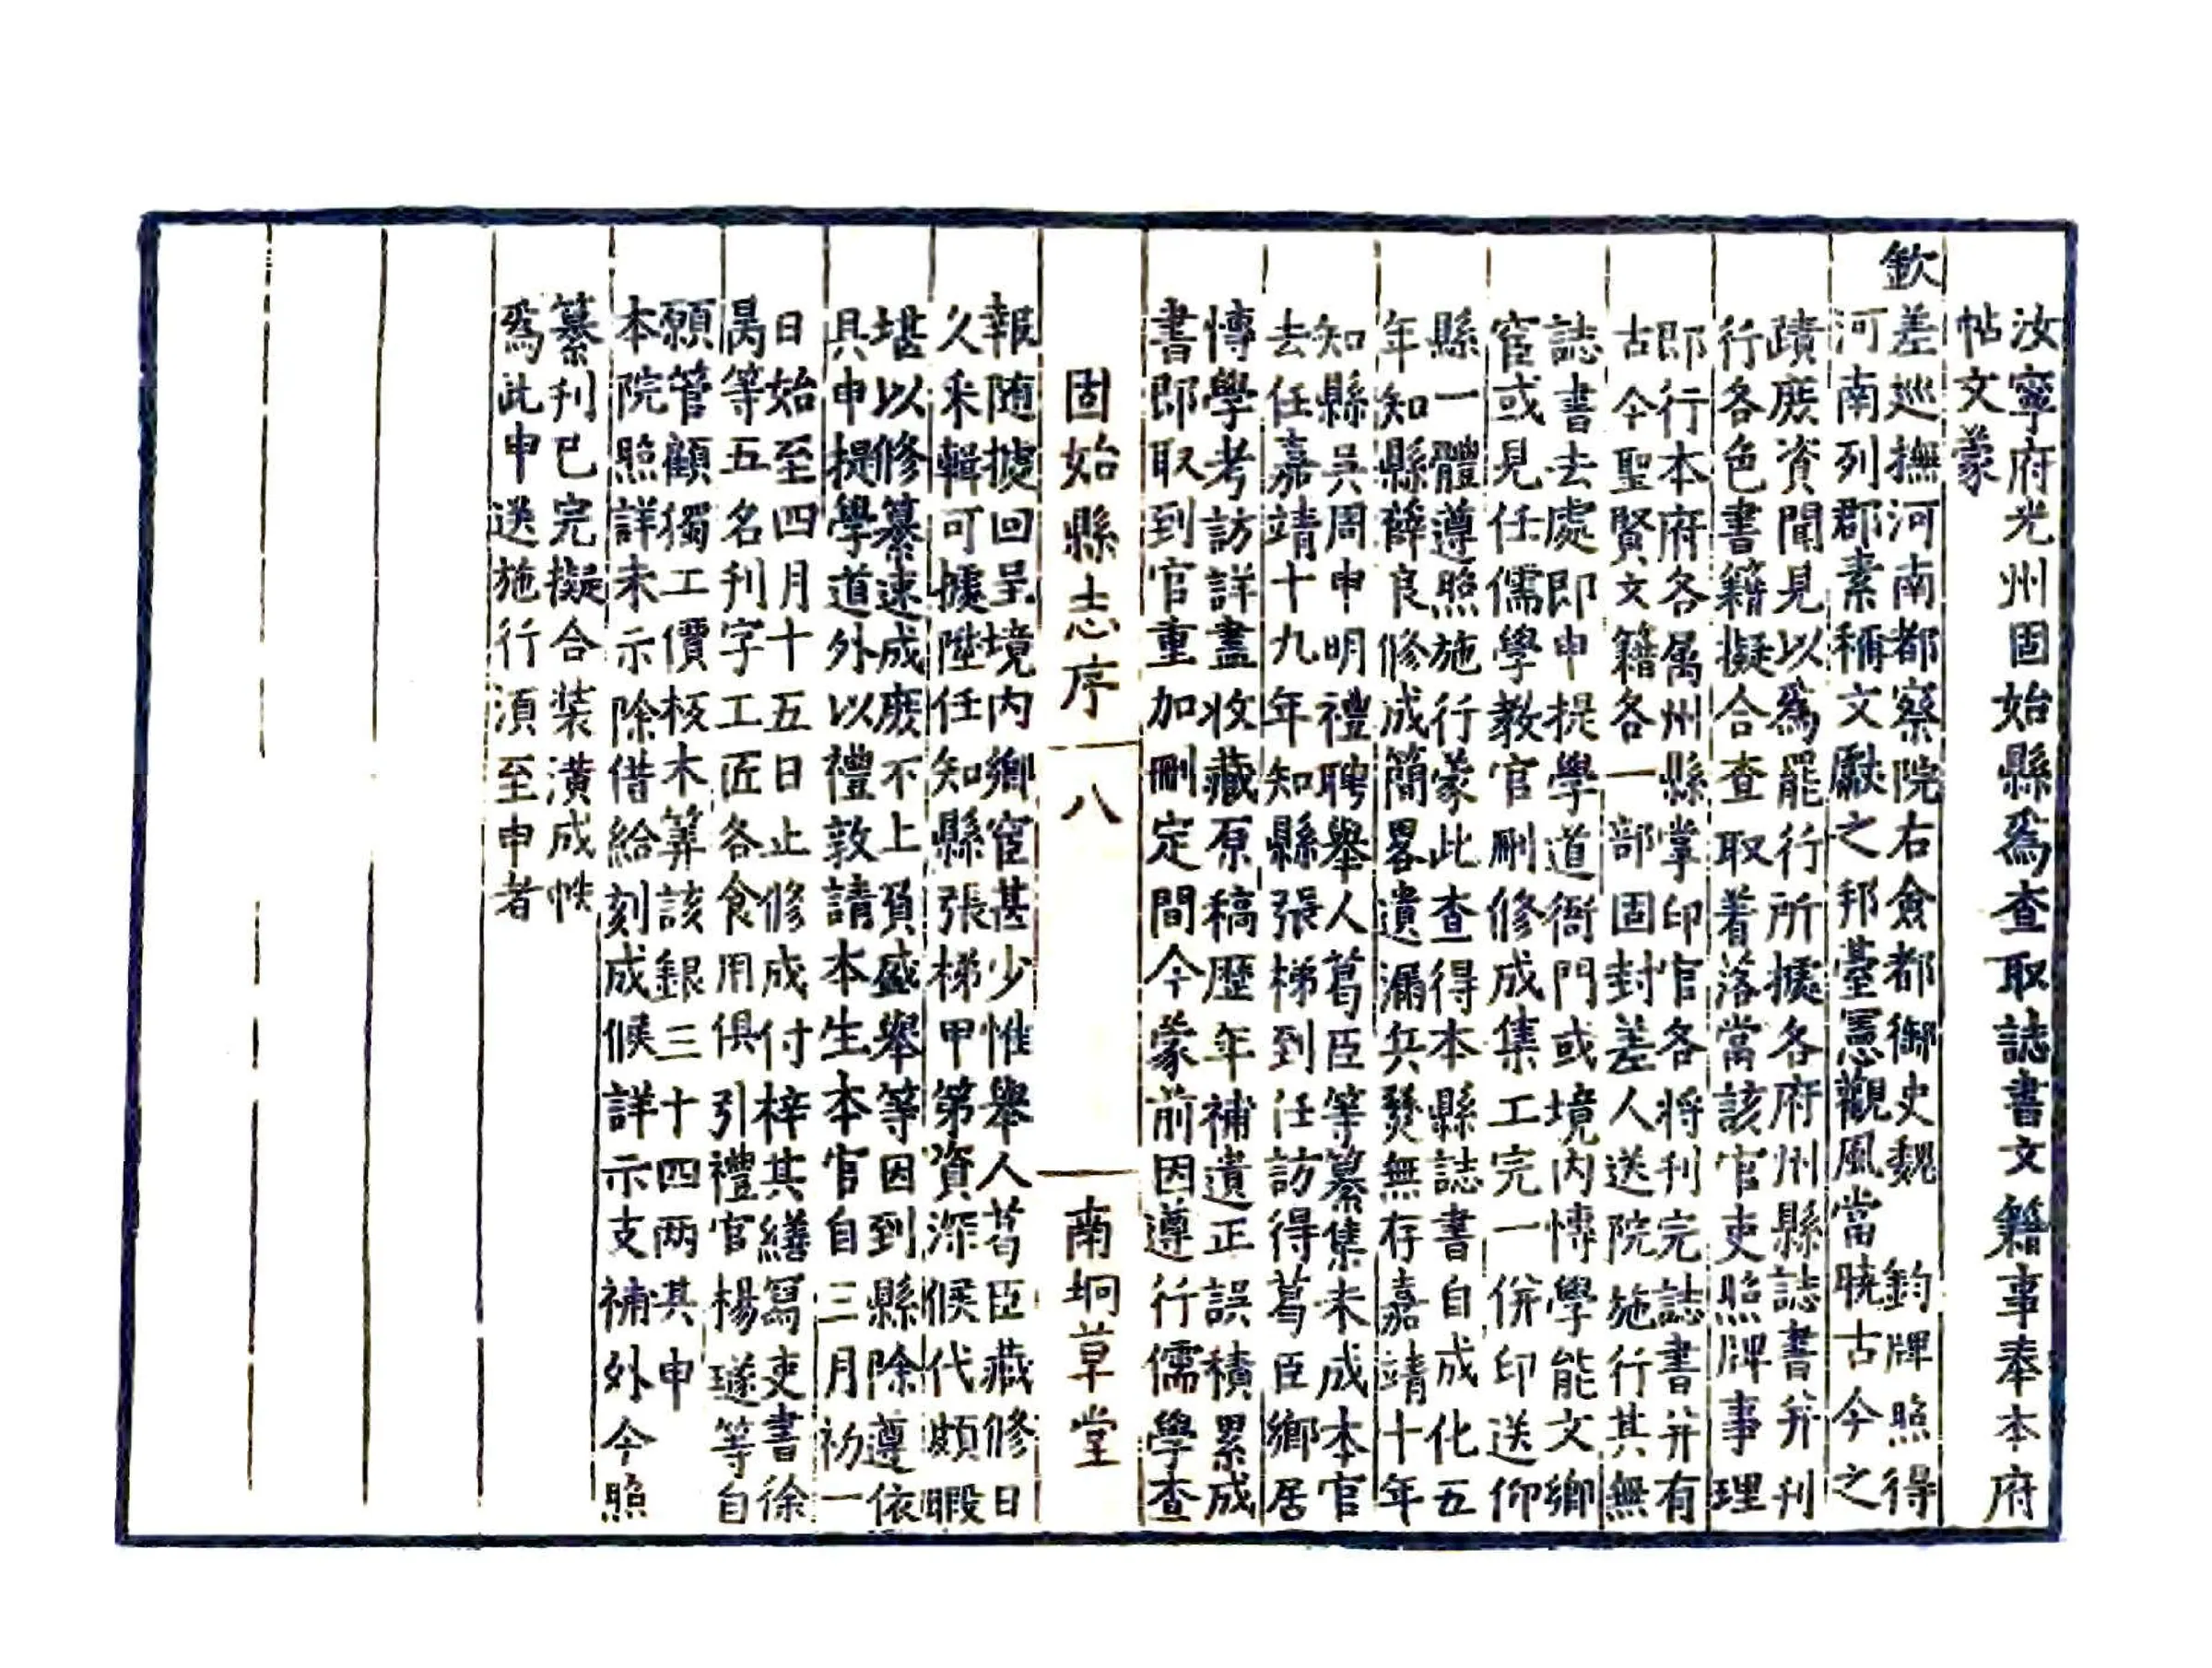 汝寧府光州固始縣爲查取誌書文籍事奉本府
帖文蒙
欽差巡撫河南都察院右僉都御史魏　鈞牌照得
河南列郡素稱文獻之邦臺憲觀風當曉古今之
蹟庶資聞見以爲罷行所據各府州縣誌書并刊
行各色書籍擬合查取着落當該官吏照牌事理
即行本府各属州縣掌印官各将刊完誌書并有
古今聖賢文籍各一部固封差人送院施行其無
誌書去處即申提學道衙門或境内愽學能文鄉
宦或見任儒學教官刪修成集工完一併印送仰
縣一體遵照施行蒙此查得本縣誌書自成化五
年知縣薛良修成簡畧遺漏兵燹無存嘉靖十年
知縣吳周申明禮聘舉人葛臣等纂集未成本官
去任嘉靖十九年知縣張梯到任訪得葛臣鄉居
愽學考訪詳盡收藏原稿歷年補遺正誤積累成
書即取到官重加刪定間今蒙前因遵行儒學查
固始縣志序
八
南坰草堂
報随據回呈境内鄉宦甚少惟舉人葛臣藏修日
久采輯可據陞任知縣張梯甲第資深候代頗暇
堪以修纂速成庶不上負盛舉等因到縣除遵依
具申提學道外以禮敦請本生本官自三月初一
日始至四月十五日止修成付梓其繕寫吏書徐
昺等五名刊字工匠各食用俱引禮官楊璲等自
願管顧獨工價板木筭該銀三十四两其申
本院照詳未示除借給刻成候詳示支補外今照
纂刊已完擬合装潢成帙
爲此申送施行湏至申者